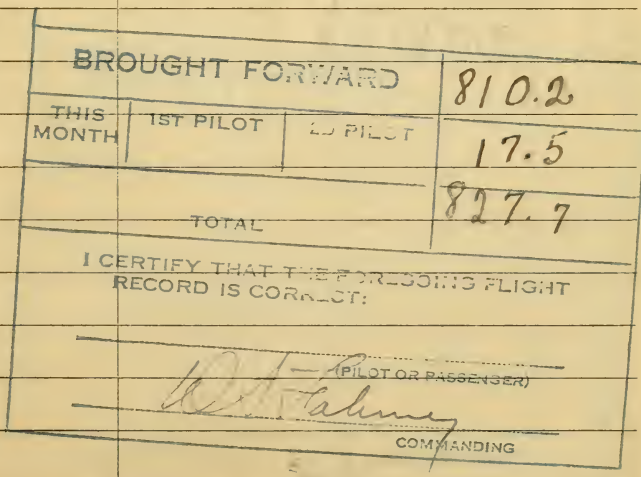 BROUGHT FORWARD 810.2
THIS MONTH 1ST PILOT 2D PILOT 17.5
TOTAL 827.7
I CERTIFY THAT THE FOREGOING FLIGHT
RECORD IS CORRECT:
(PILOT OR PASSENGER)
COMMANDING